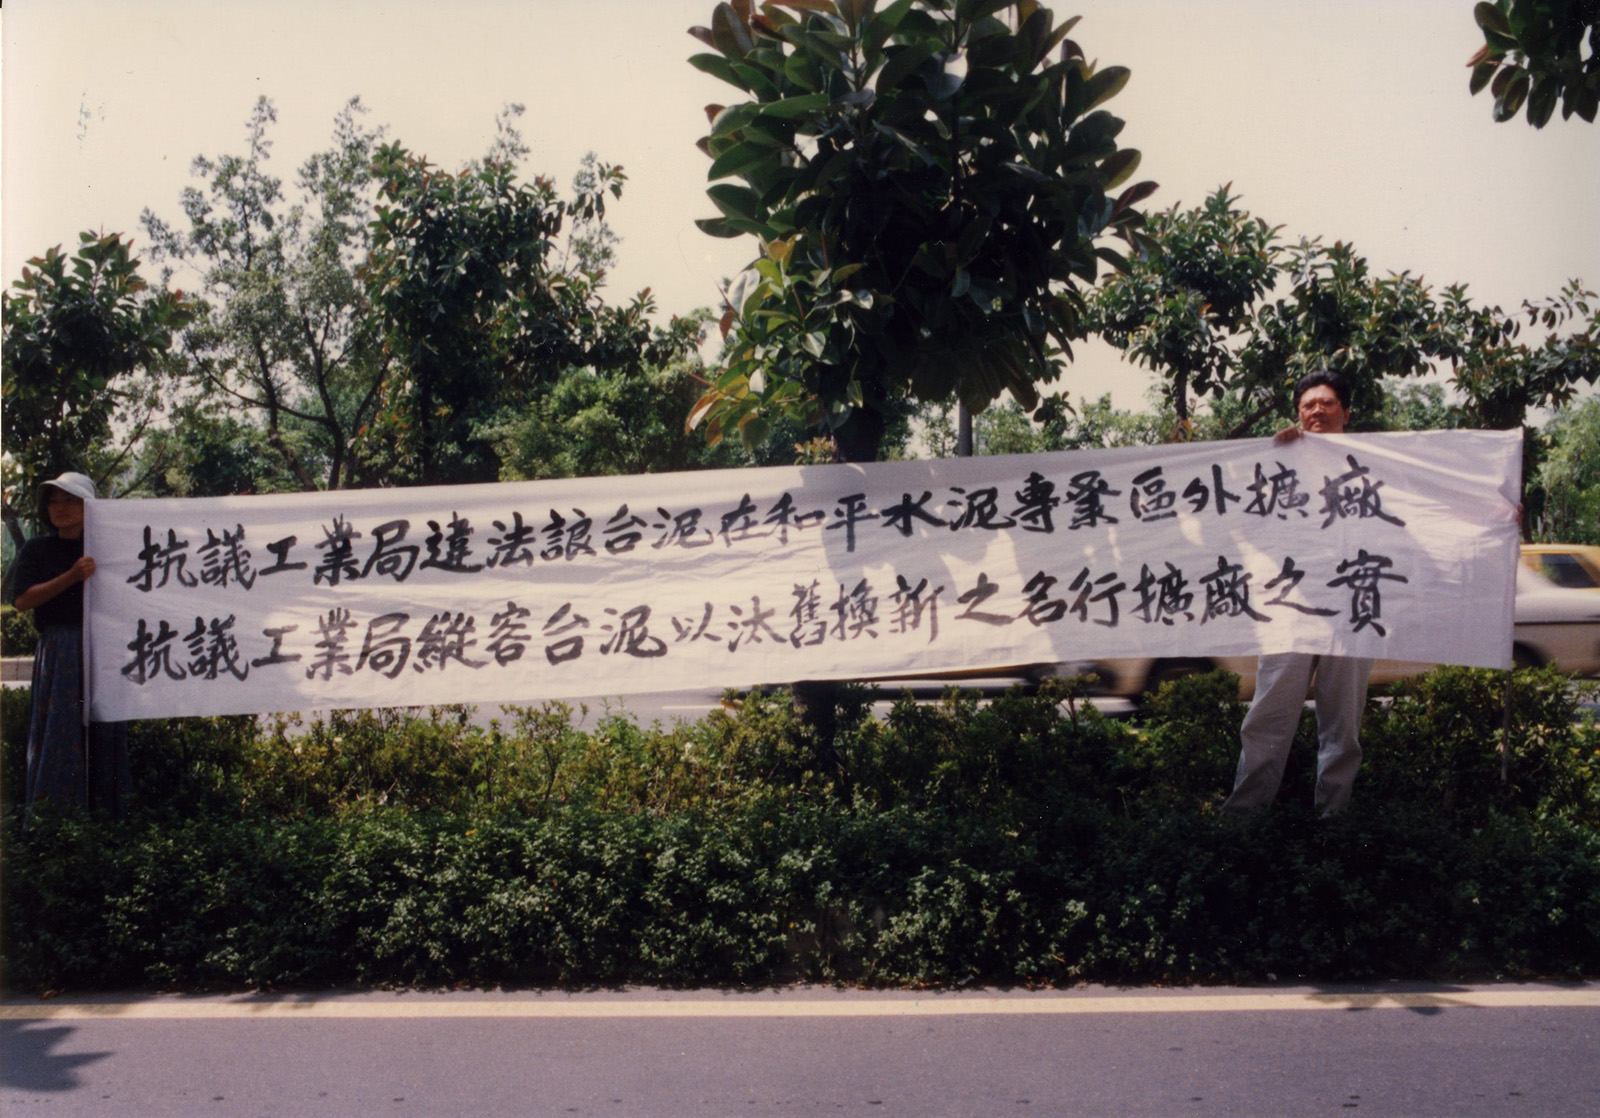 抗議工業局違法誏台泥在和平水泥專業區外擴廠
抗議工業局縱容台泥以汰舊換新之名行擴廠之實